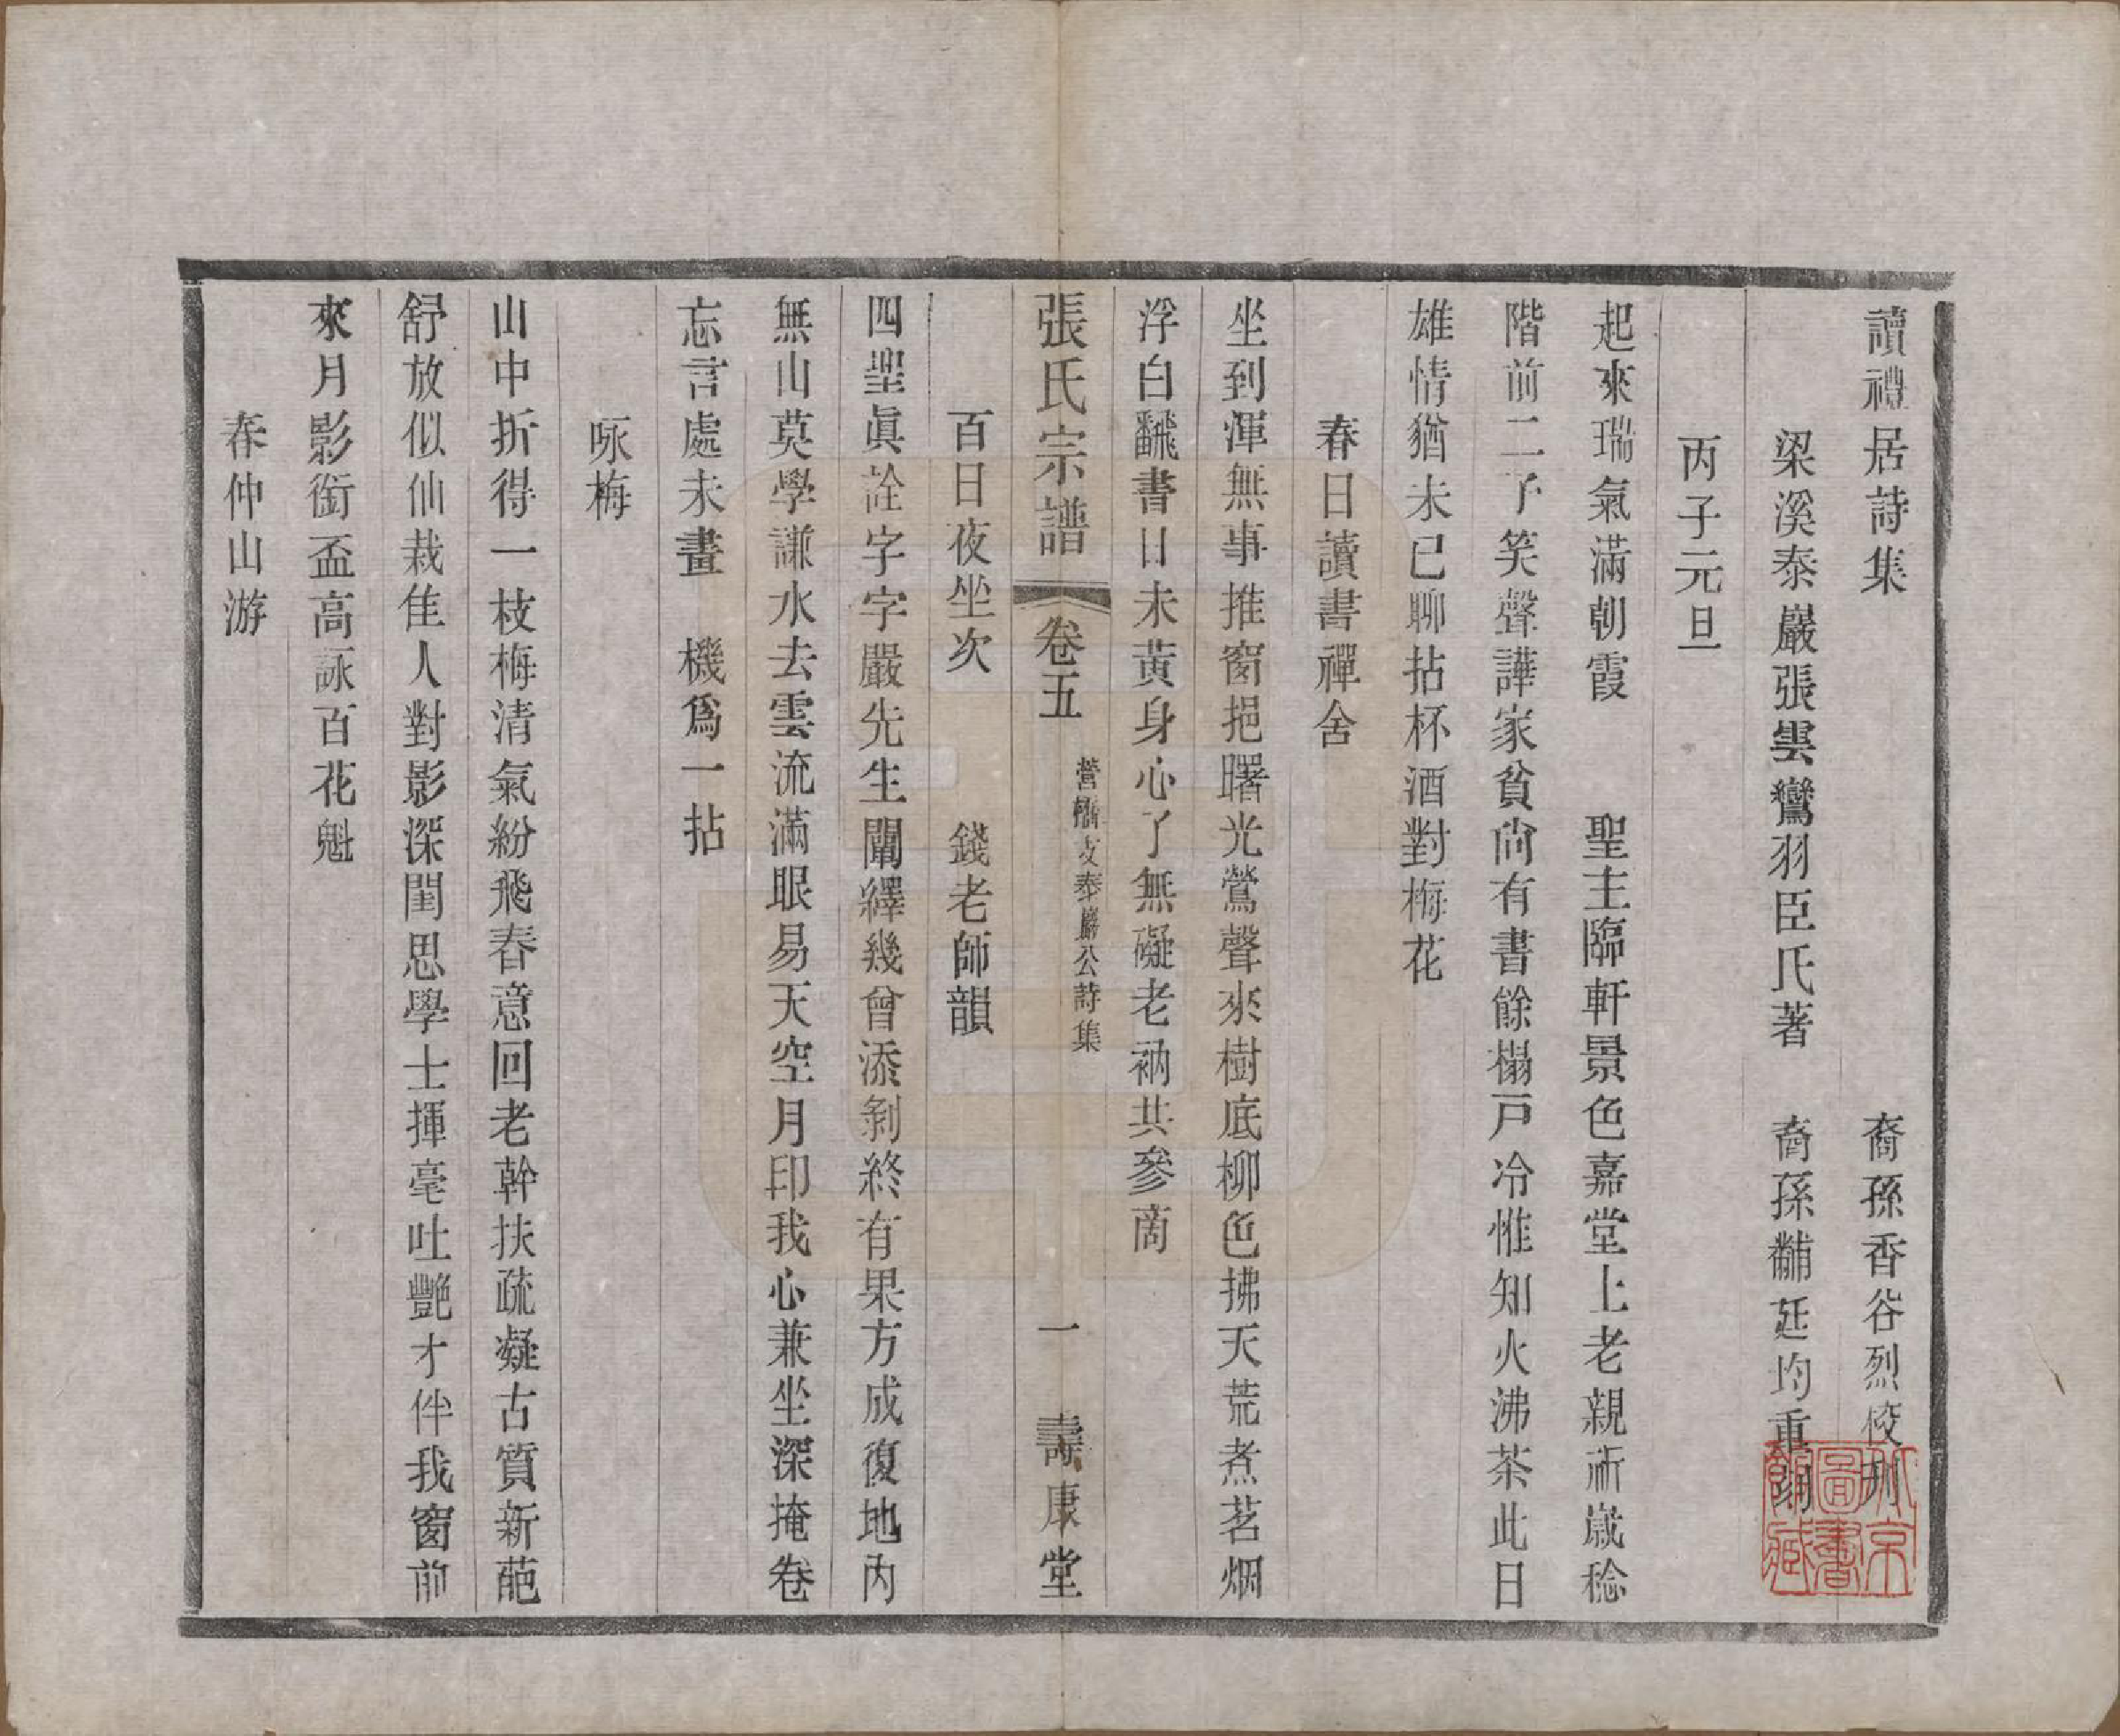 讀禮居詩集　裔孫香谷烈校刊
梁溪泰巖張雲鸞羽臣氏著　裔孫黼廷均重
丙子元旦
起來瑞氣滿朝霞　聖主臨軒景色嘉堂上老親祈歲稔
階前二子笑聲譁家貧尙有書餘榻戸冷惟知火沸茶此日
雄情猶未已聊拈杯酒對梅花
春日讀書禪舍
坐到渾無事推窗挹曙光鶯聲來樹底柳色拂天荒煮茗烟
浮白飜書日未黃身心了無礙老衲共參啇
張氏宗譜　卷五　營橋支泰巖公詩集　一　壽康堂
百日夜坐次　錢老師韻
四聖眞詮字字嚴先生闡繹幾曾添剝終有果方成復地內
無山莫學謙水去雲流滿眼易天空月印我心兼坐深掩卷
忘言處未畫　機爲一拈
咏梅
山中折得一枝梅清氣紛飛春意回老幹扶疏凝古質新葩
舒放似仙栽佳人對影深閨思學士揮毫吐艷才伴我窗前
來月影銜盃高詠百花魁
春仲山游
北京圖書館藏